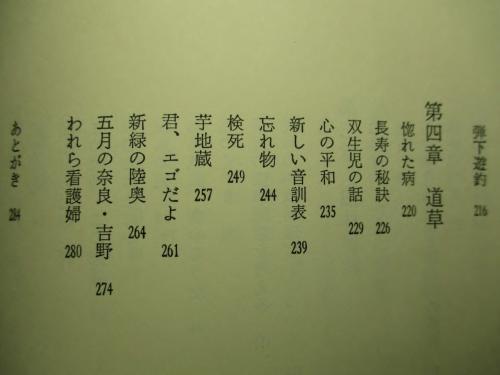 弾下遊釣 216
第四章 道草
惚れた病 220
長寿の秘訣 226
双生児の話 229
心の平和 235
新しい音訓表 239
忘れ物 244
検死 249
芋地蔵 257
君、エゴだよ 261
新緑の陸奥 264
五月の奈良・吉野 274
われら看護婦 280
あとがき 284